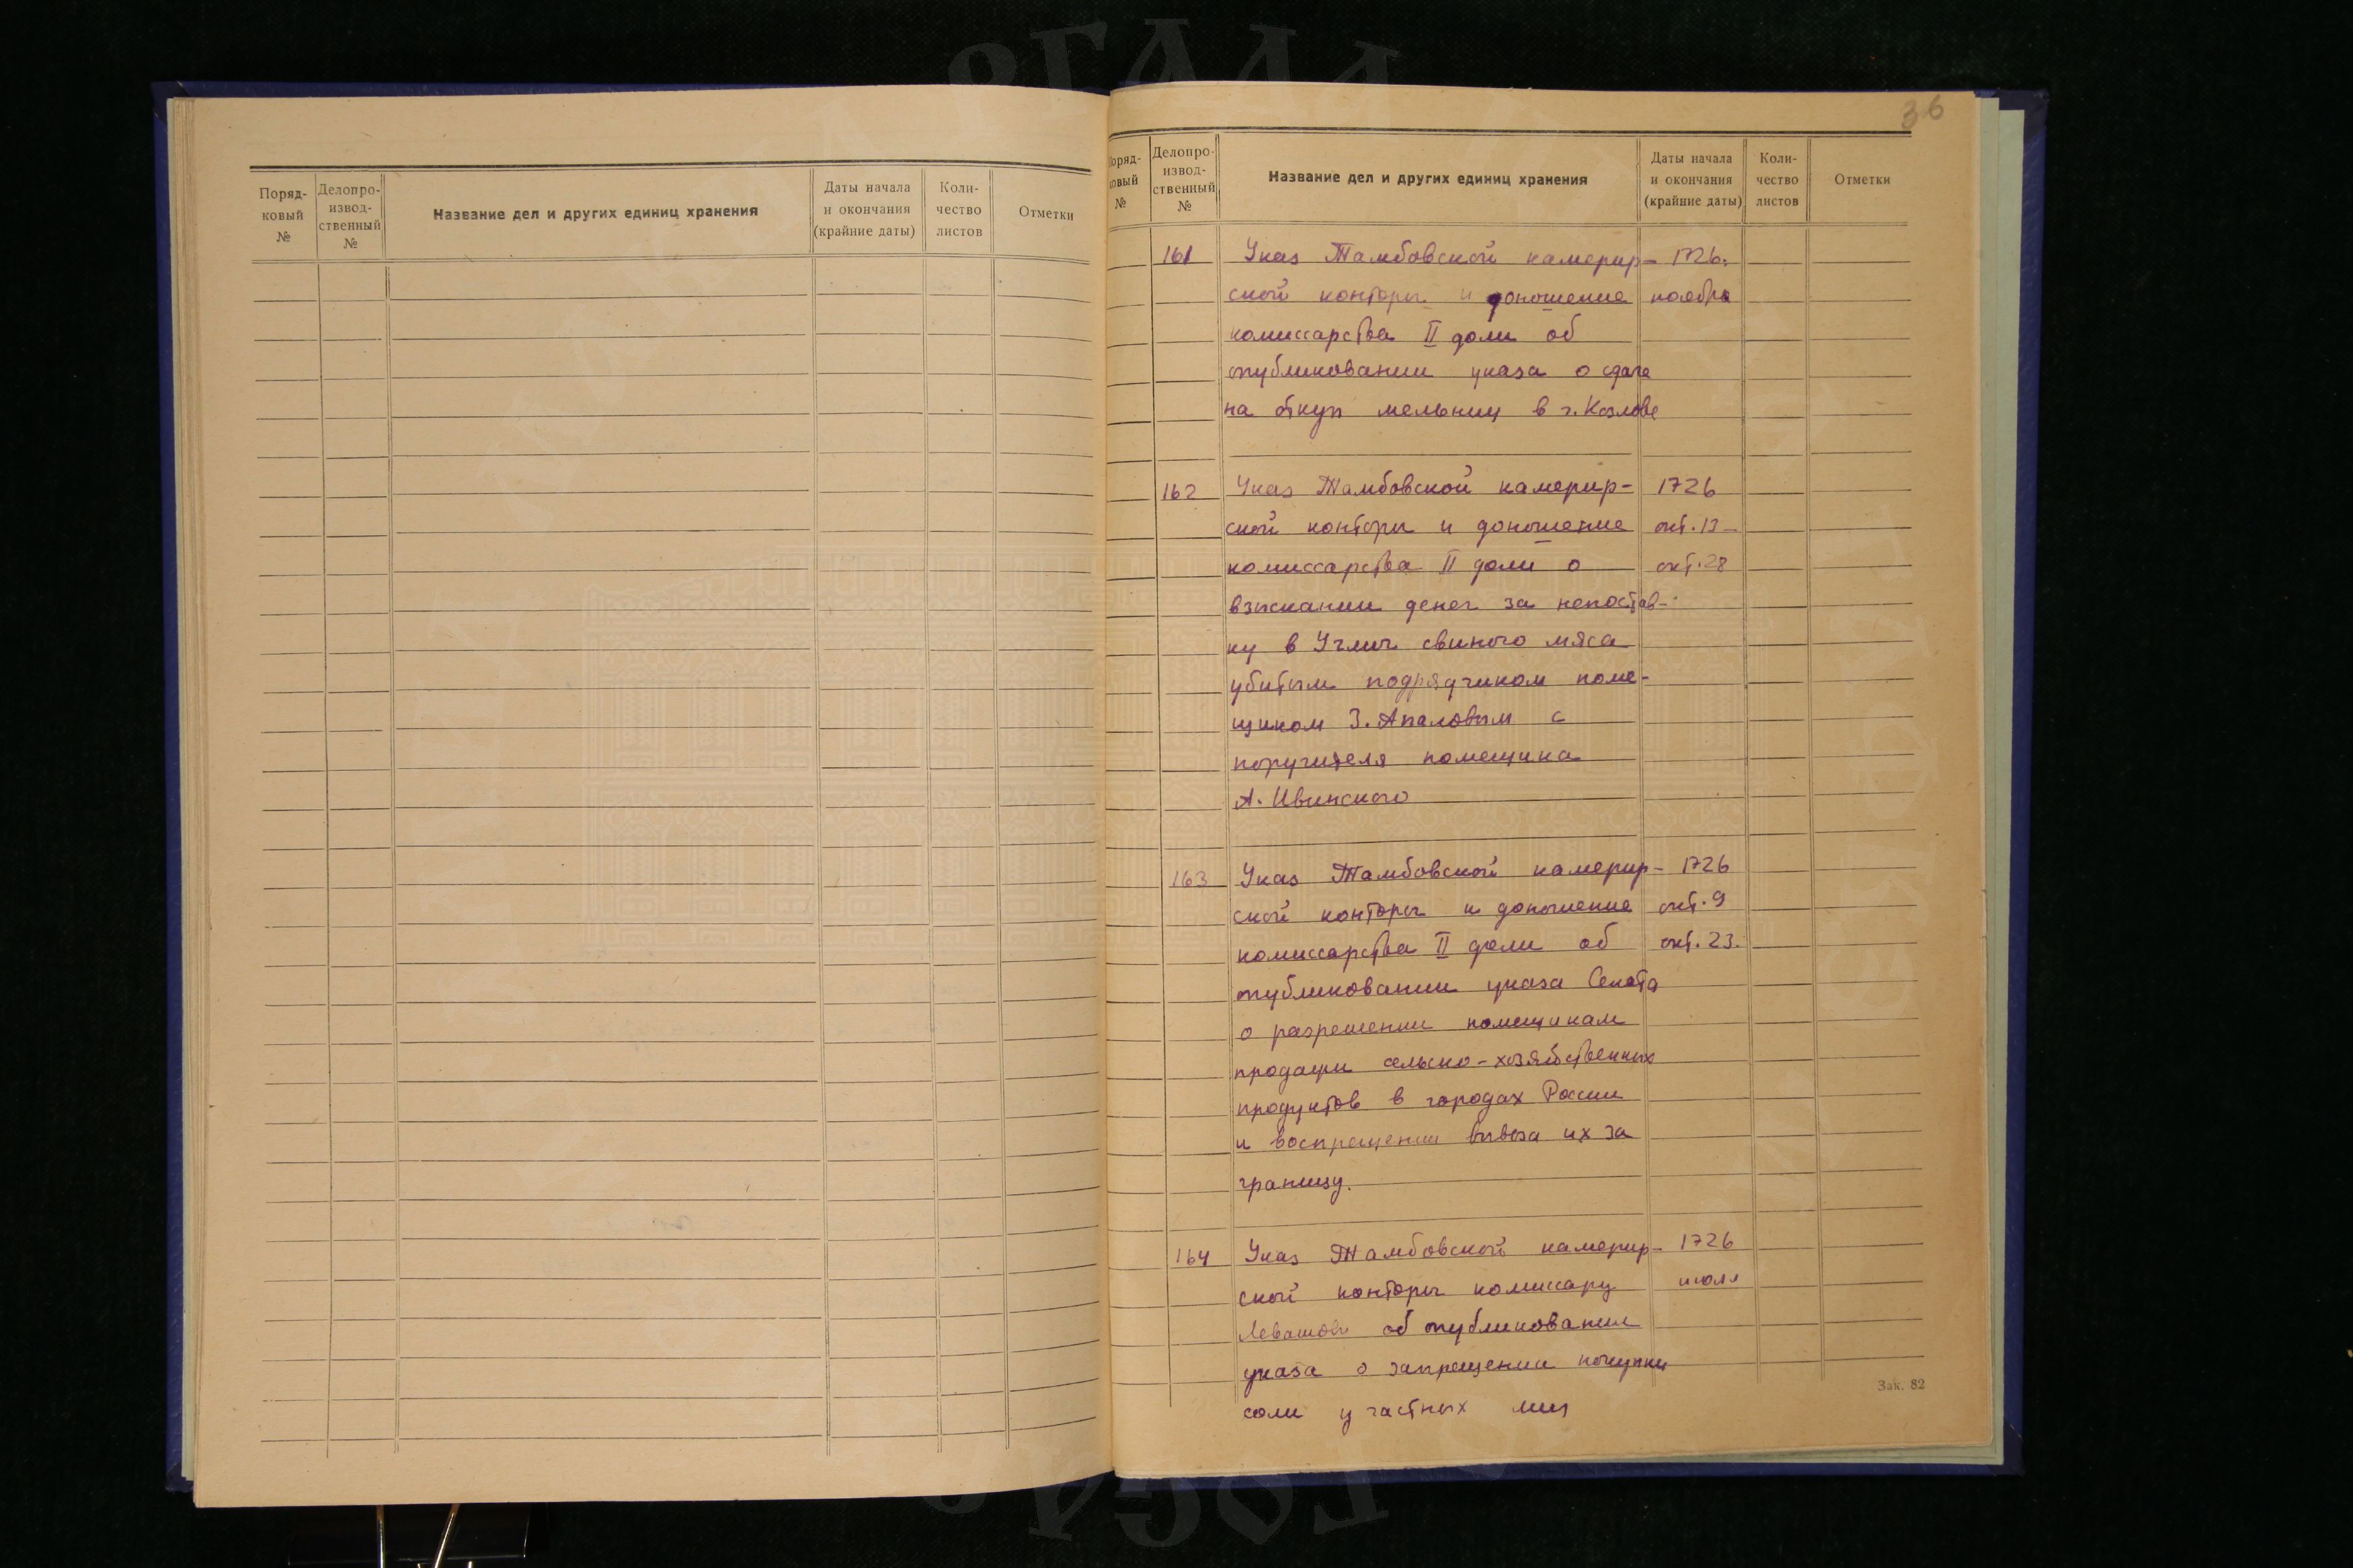 Поряд-
ковый
№
Делопро-
извод-
ственный
№
Название дел и других единиц хранения
Даты начала
и окончания
(крайние даты)
Коли-
чество
листов
Отметки
36
Поряд-
ковый
№
Делопро-
извод-
ственный
№
Название дел и других единиц хранения
Даты начала
и окончания
(крайние даты)
Коли-
чество
листов
Отметки
161 Указ Тамбовской камерир- 1726.
ской конторы и доношение ноября
комиссарства II доли об
опубликовании указа о сдаче
на откуп мельниц в г. Козлове
162 Указ Тамбовской камерир- 1726
ской конторы и доношение окт. 13-
комиссарства II доли о окт. 28
взыскании денег за непостав-
ку в Углич свиного мяса
убитым подрядчиком поме-
щиком З. Апаловым с
поручителя помещика
А. Ивинского
163 Указ Тамбовской камерир- 1726
ской конторы и доношение окт. 9
комиссарства II доли об окт. 23.
опубликовании указа Сената
о разрешении помещикам
продажи сельско-хозяйственных
продуктов в городах России
и воспрещении вывоза их за
границу.
164 Указ Тамбовской камерир- 1726
ской конторы комиссару июля
Левашову об опубликовании
указа о запрещении покупки
соли у частных лиц
Зак. 82